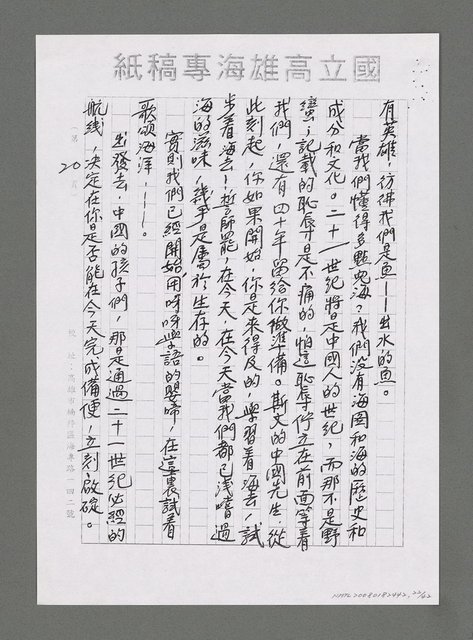 國立高雄海專稿紙
有英雄,彷彿我們是魚——出水的魚。
當我們懂得多點兒海?我們沒有海國和海的歷史和
成分和文化。二十一世紀將是中國人的世紀,而那不是野
蠻;記載的恥辱才是不痛的,怕這恥辱佇立在前面等着
我們,還有四十年留給你做準備。斯文的中國先生,從
此刻起,你如果開始,你是來得及的,學習着海去,試
步着海去——誓師罷,在今天,在今天當我們都已淺嚐過
海的滋味,幾乎是屬於生存的。
實則我們已經開始,用呀呀學語的嬰啼,在這裏試着
歌頌海洋,——。
出發去,中國的孩子們,那是通過二十一世紀必經的
航线,決定在你是否能在今天完成備便,立刻啟碇。
第 20 頁
校址:高雄市楠梓區海專路一四二號
NMTL20080182442, 22/62